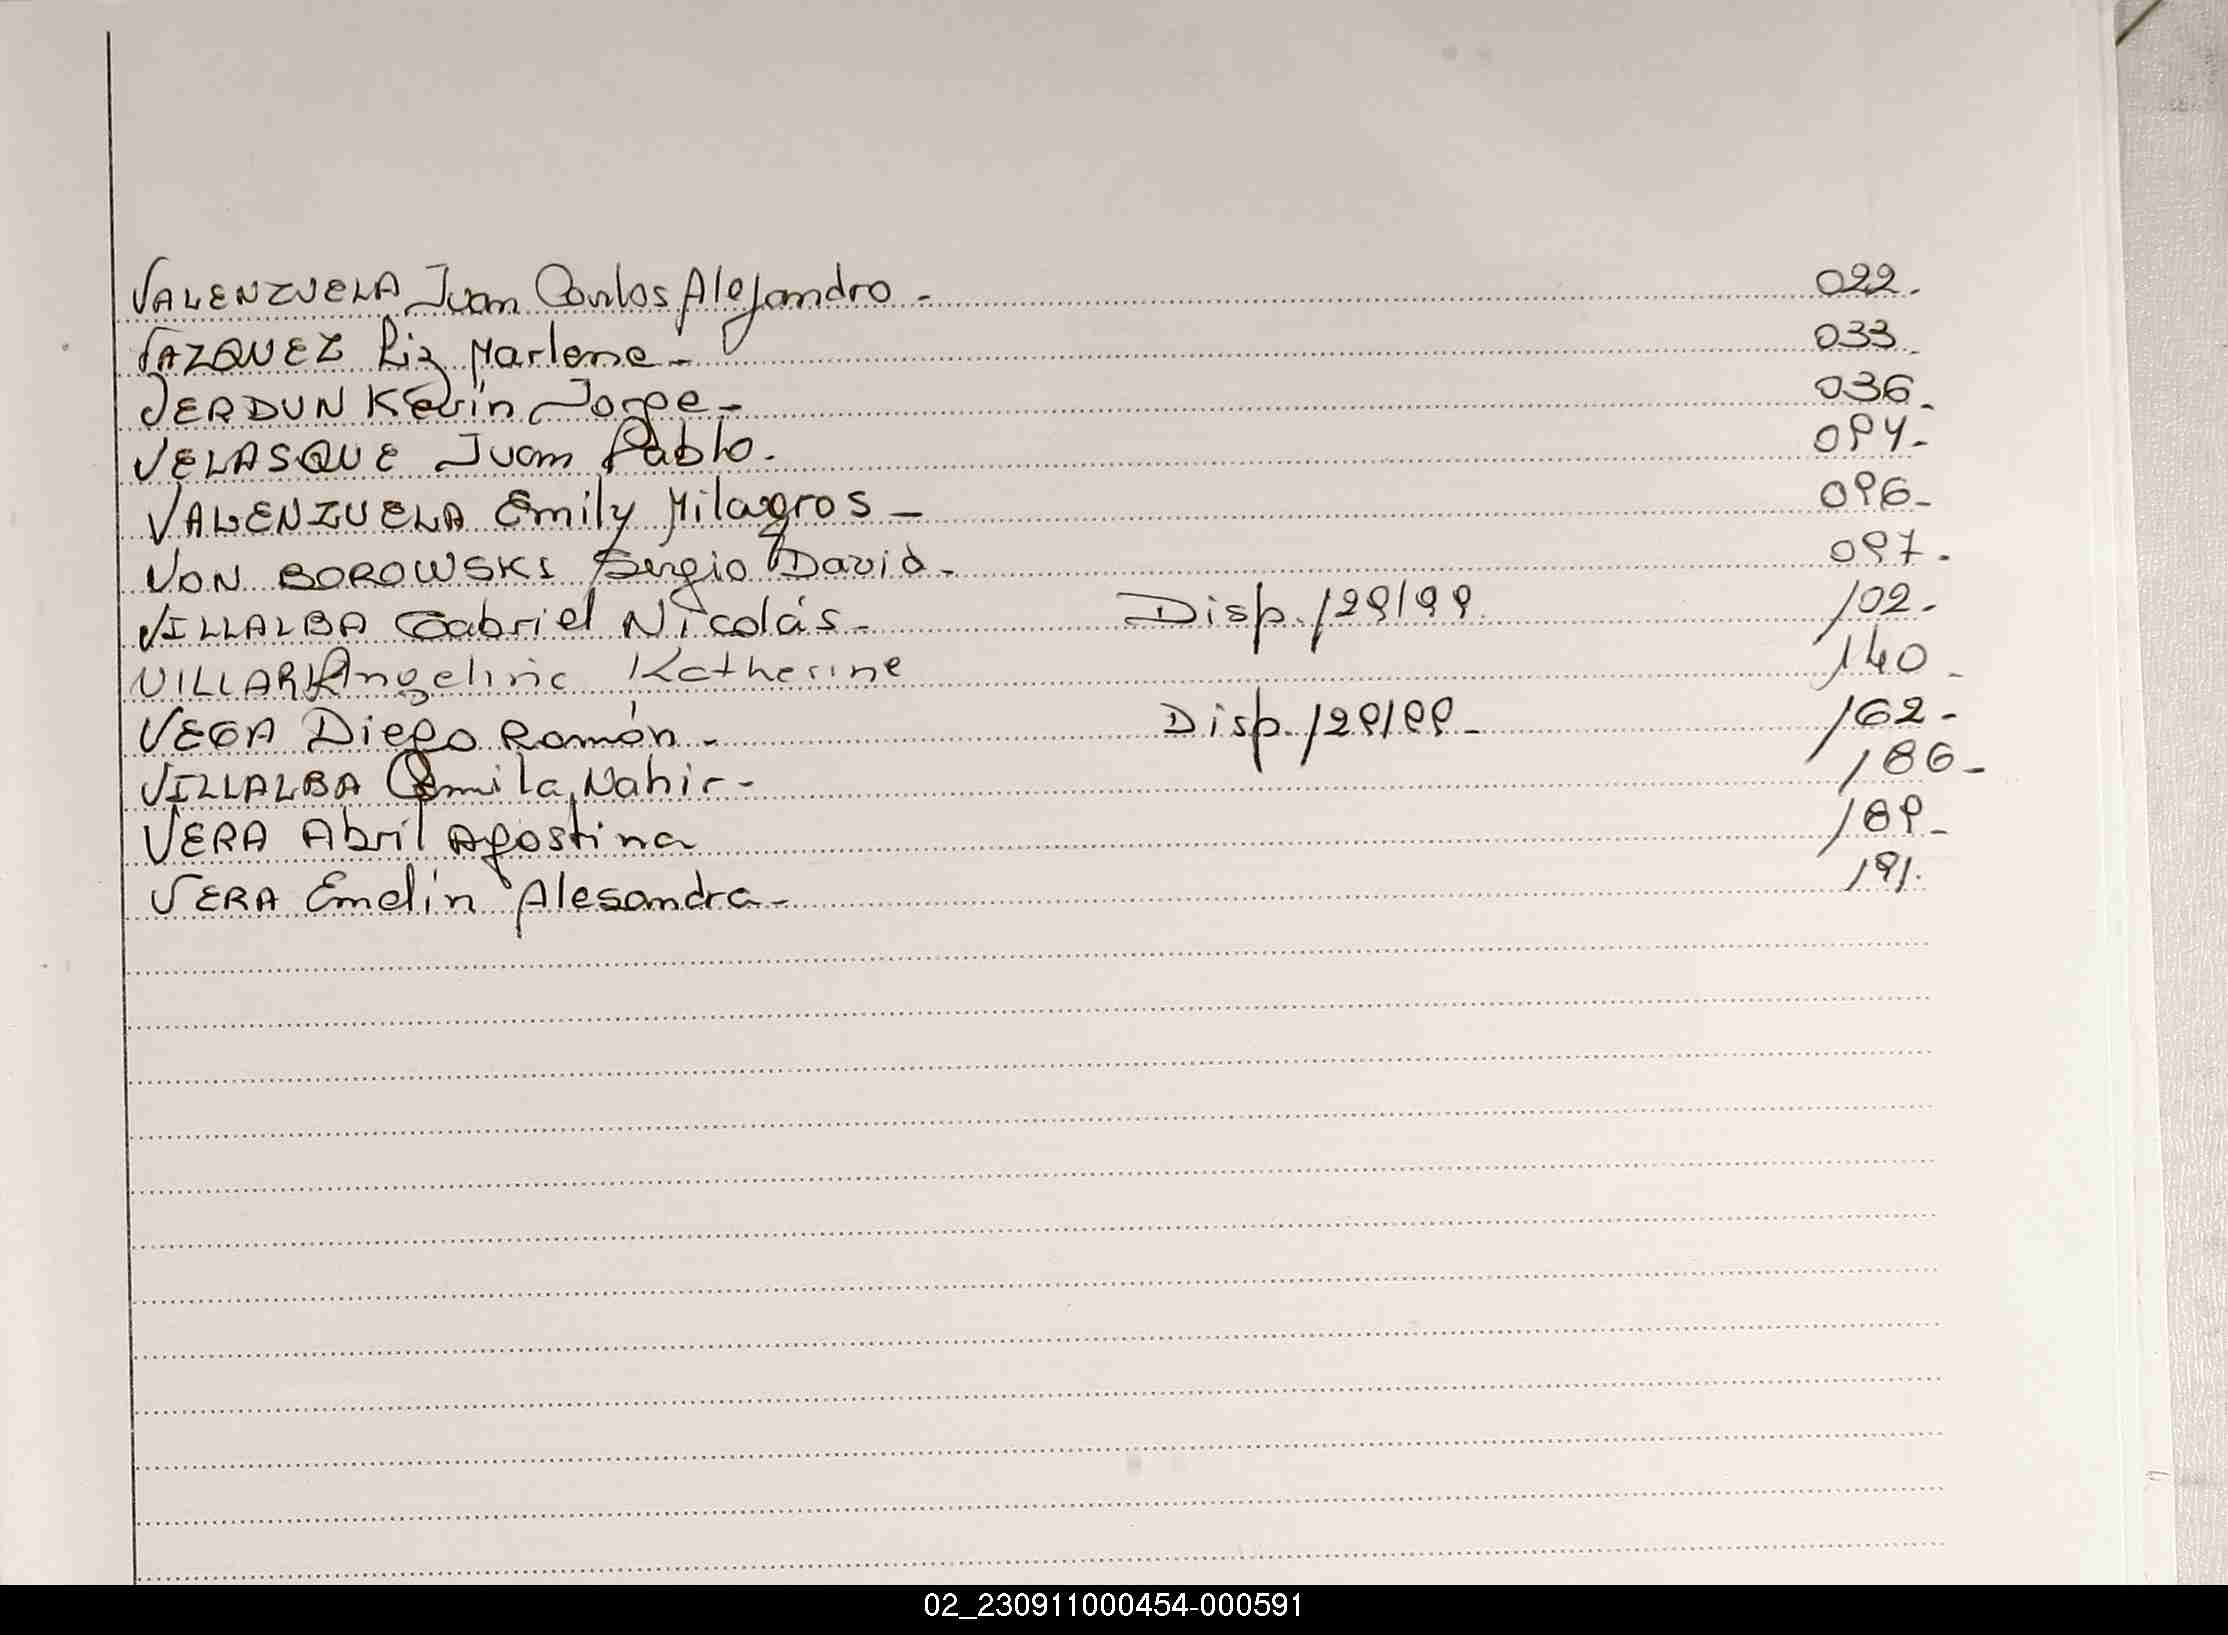 VALENZUELA Juan Carlos Alejandro. 022.
VAZQUEZ Liz Marlene- 033.
VERDUN Kevin Jorge- 036.
VELASQUE Juan Pablo. 094-
VALENZUELA Emily Milagros- 096-
VON BOROWSKI Sergio David- 097.
VILLALBA Gabriel Nicolás- Disp. 129/99. 102-
VILLAR Angeline Katherine 140-
VEGA Diego Román- Disp. 129/99- 162-
VILLALBA Camila Nahir- 186-
VERA Abril Agostina 189-
VERA Emelín Alesandra- 191.
02_230911000454-000591